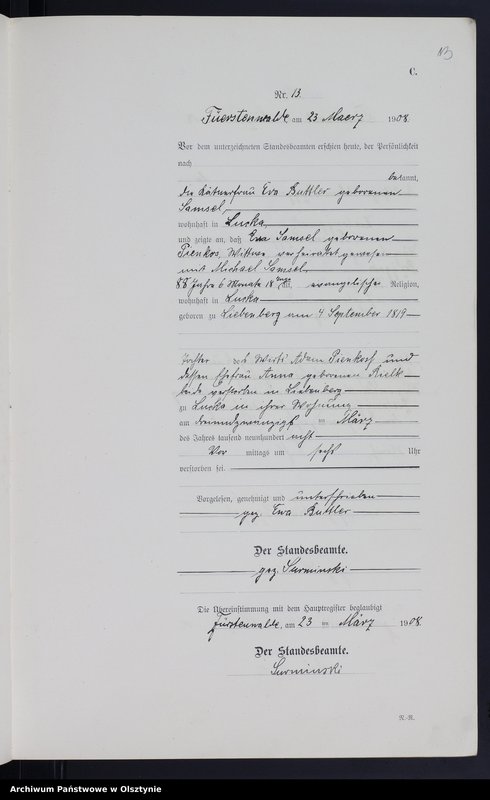 113
C.
Nr. 13.
Fuerstenwalde am 23 Maerz 1908.
Vor dem unterzeichneten Standesbeamten erschien heute, der Persönlichkeit
nach
bekannt,
die Kätnerfrau Eva Buttler geborenen
Samsel,
wohnhaft in Lucka,
und zeigte an, daß Eva Samsel geborenen
Pienkos, Wittwe verheiratet gewesen
mit Michael Samsel,
88 Jahre 6 Monate 18 Tage alt, evangelische Religion,
wohnhaft in Lucka
geboren zu Liebenberg am 4 September 1819
Tochter des Wirts Adam Pienkoss und
dessen Ehefrau Anna geborenen
beide verstorben in Liebenberg
zu Lucka in ihrer Wohnung
am dreiundzwanzigst im März
des Jahres tausend neunhundert acht
Vor mittags um sechs Uhr
verstorben sei.
Vorgelesen, genehmigt und unterschrieben
gez. Eva Buttler
Der Standesbeamte.
gez. Surminski
Die Übereinstimmung mit dem Hauptregister beglaubigt
Fürstenwalde, am 23 im März 1908.
Der Standesbeamte.
Surminski
N.-R.
Archiwum Państwowe w Olsztynie